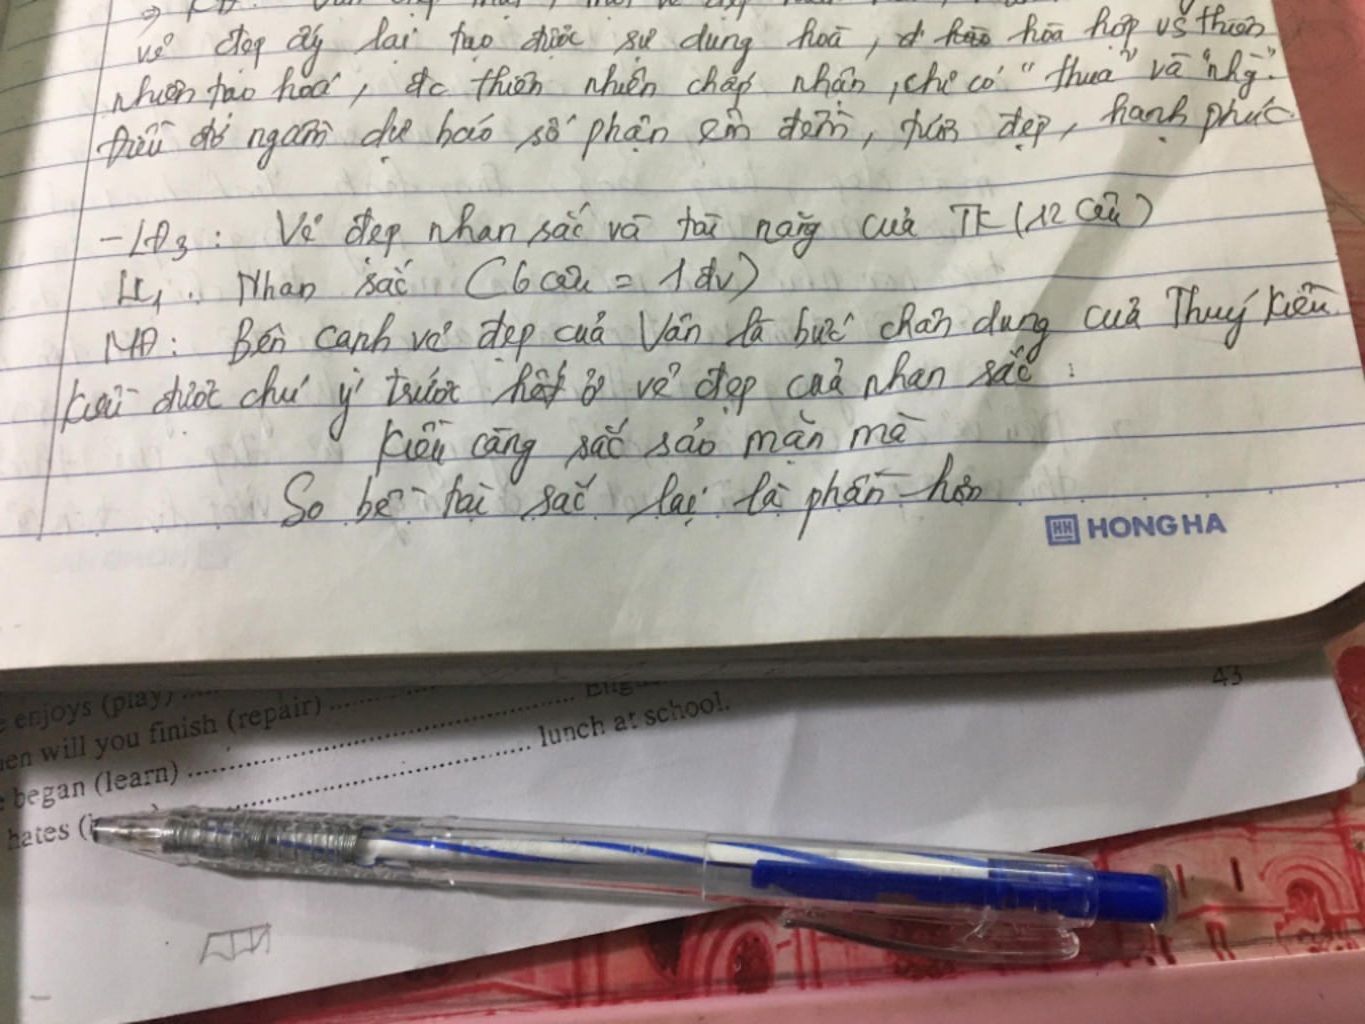 ⇒ KĐ:
vẻ đẹp ấy lại tạo được sự dung hoà, đ hào hòa hợp vs thiên
nhiên tạo hoá, đc thiên nhiên chấp nhận, chỉ có "thua" và "nhg".
Điều đó ngầm dự báo số phận êm đềm, tươi đẹp, hạnh phúc.
- LĐ3: Vẻ đẹp nhan sắc và tài năng của TK (12 câu)
LC1. Nhan sắc (6 câu = 1 đv)
MĐ: Bên cạnh vẻ đẹp của Vân là bức chân dung của Thuý Kiều.
Kiều được chú ý trước hết ở vẻ đẹp của nhan sắc:
Kiều càng sắc sảo mặn mà
So bề tài sắc lại là phần hơn
HH HONG HA
43
enjoys (play) ....
en will you finish (repair) ....
began (learn) ....
hates ( .... lunch at school.